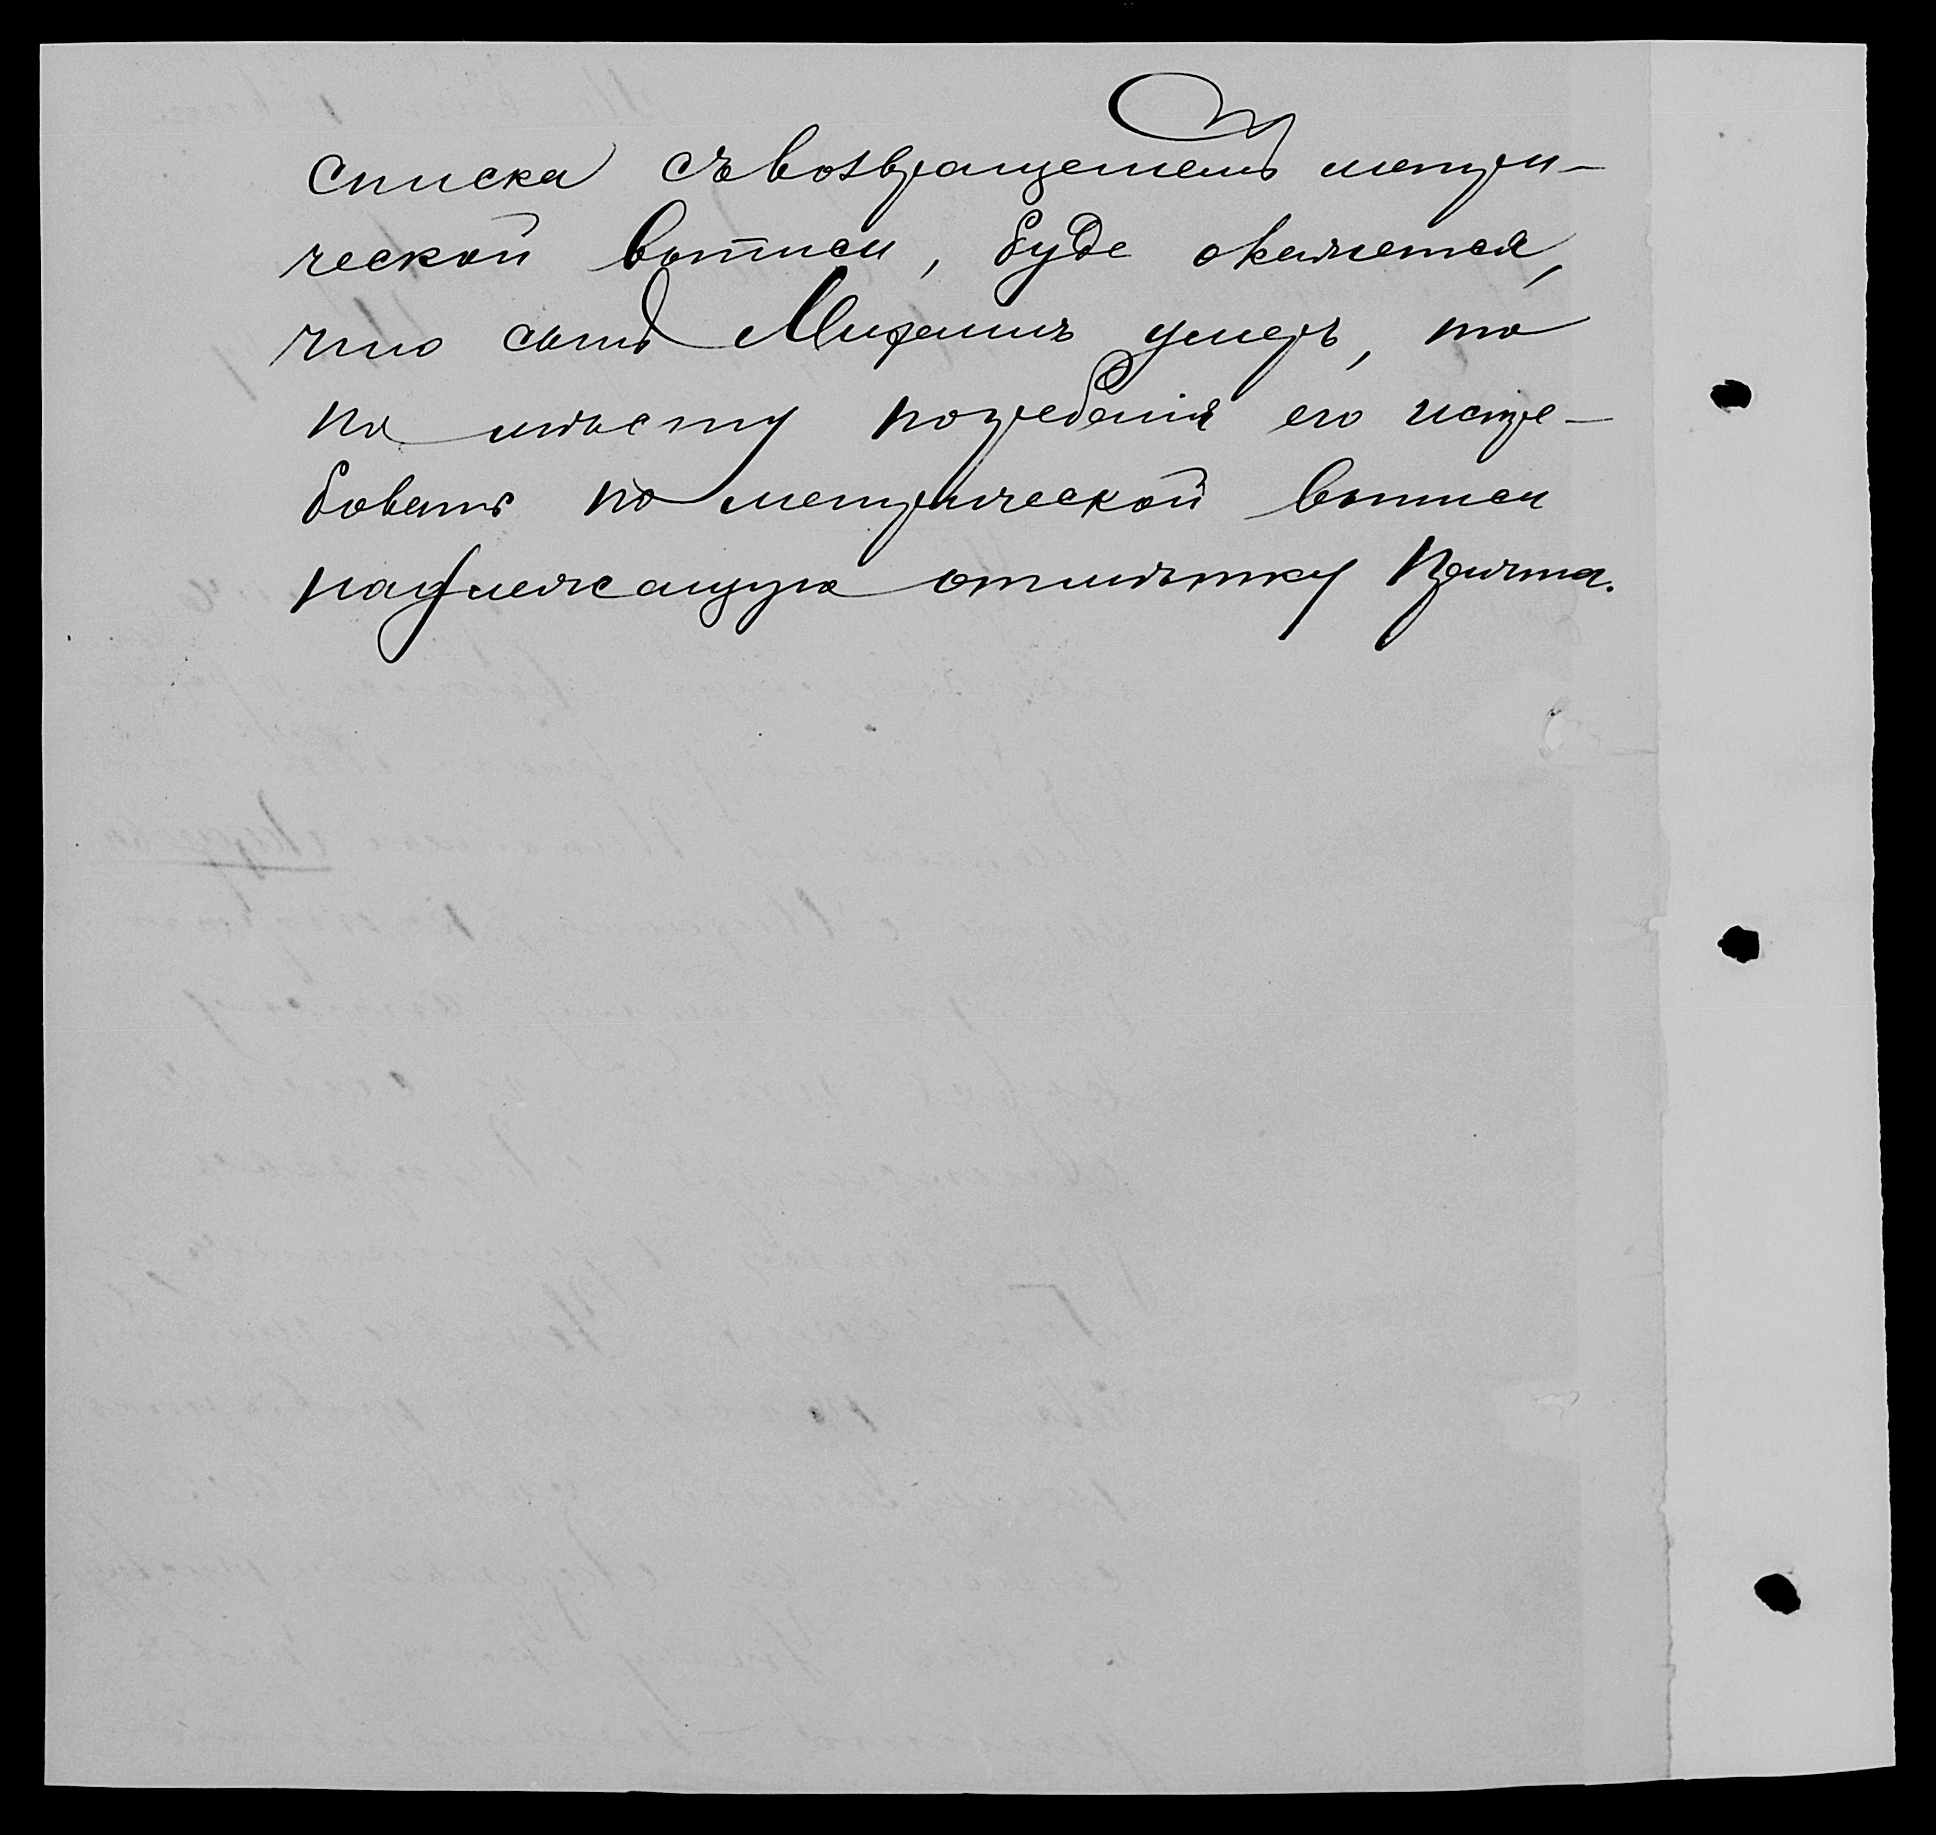 списка съ возвращеніемъ метри-
ческой выписи, буде окажется,
что сынъ Михаилъ умеръ, то
по мѣсту погребенія его истре-
бовать по метрической выписи
надлежащую отмѣтку Причта.